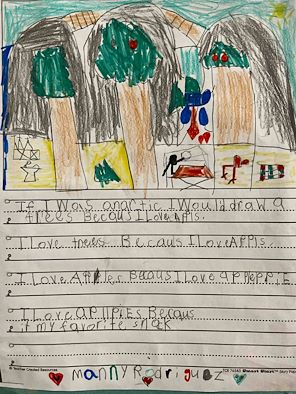 If I Was anartic I Would draw a
trees Becaus I Love APls.
I Love trees Becaus I LoveAPPls
I Love APPles Becaus I Love aPPlePPIE
I Love APllPiEs Becaus
it my favorite snak
© Teacher Created Resources
Smart Start
manny Rodriguez